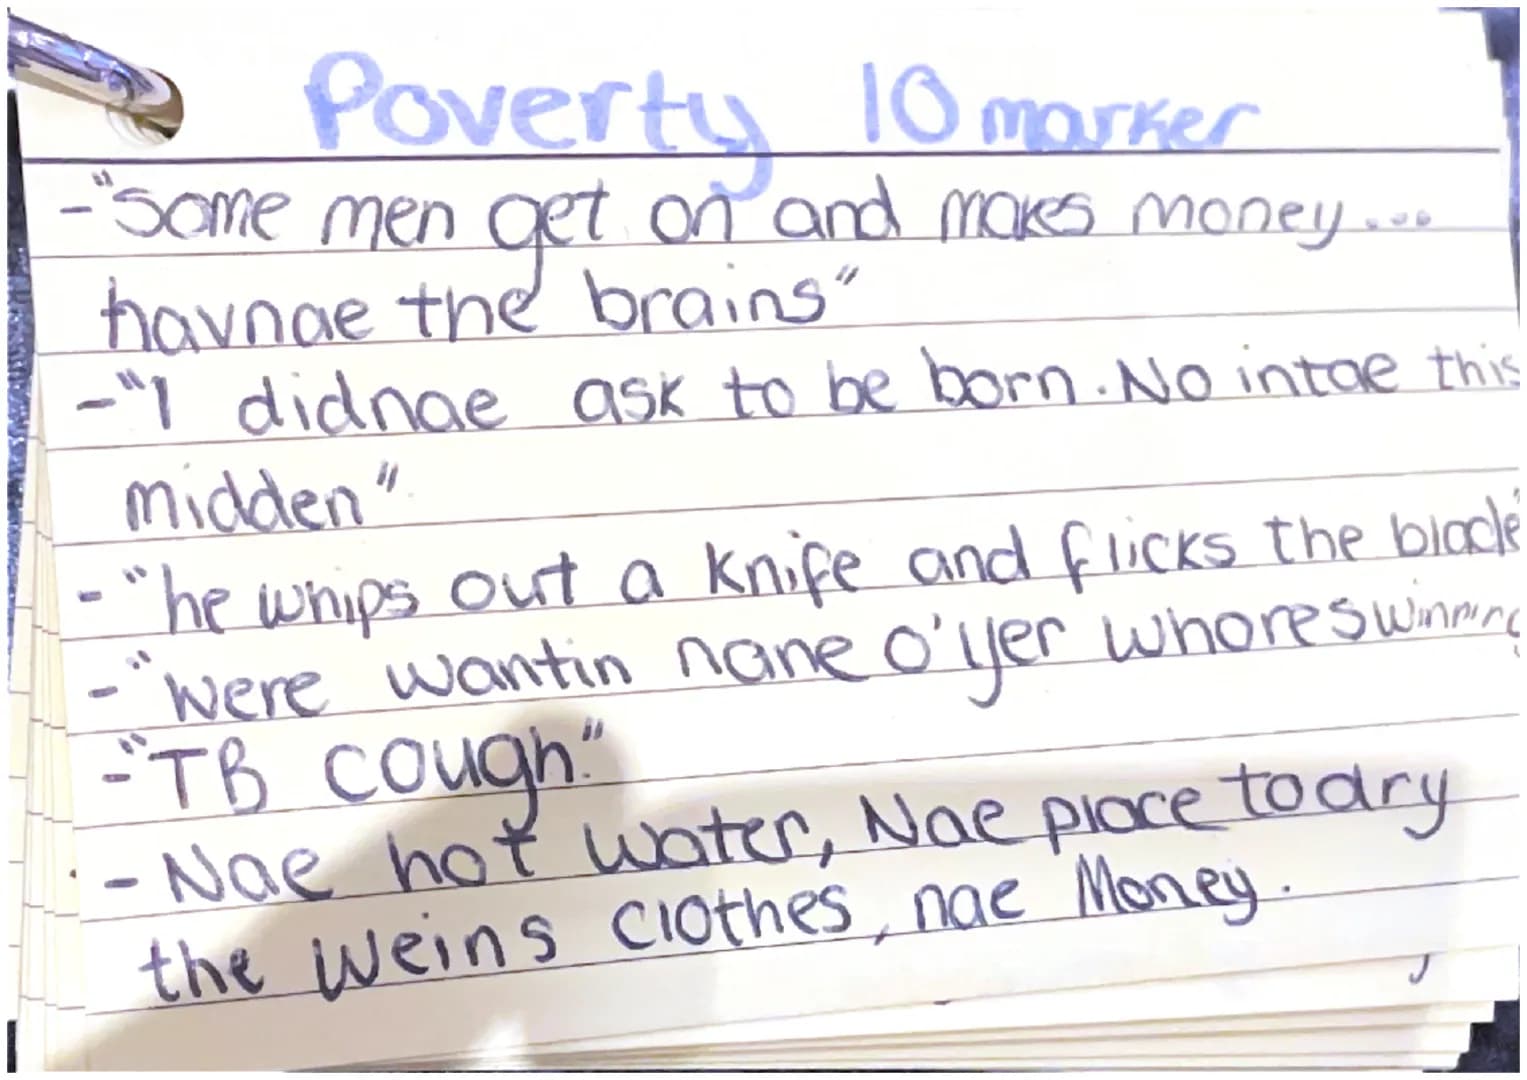 Poverty 10 marker
-"Some men get on and makes money...
havnae the brains"
-"I didnae ask to be born. No intae this
midden"
- "he whips out a knife and flicks the blade"
-"were wantin nane o'yer whores winning
-"TB cough."
- Nae hot water, Nae place to dry
the weins clothes, nae Money.